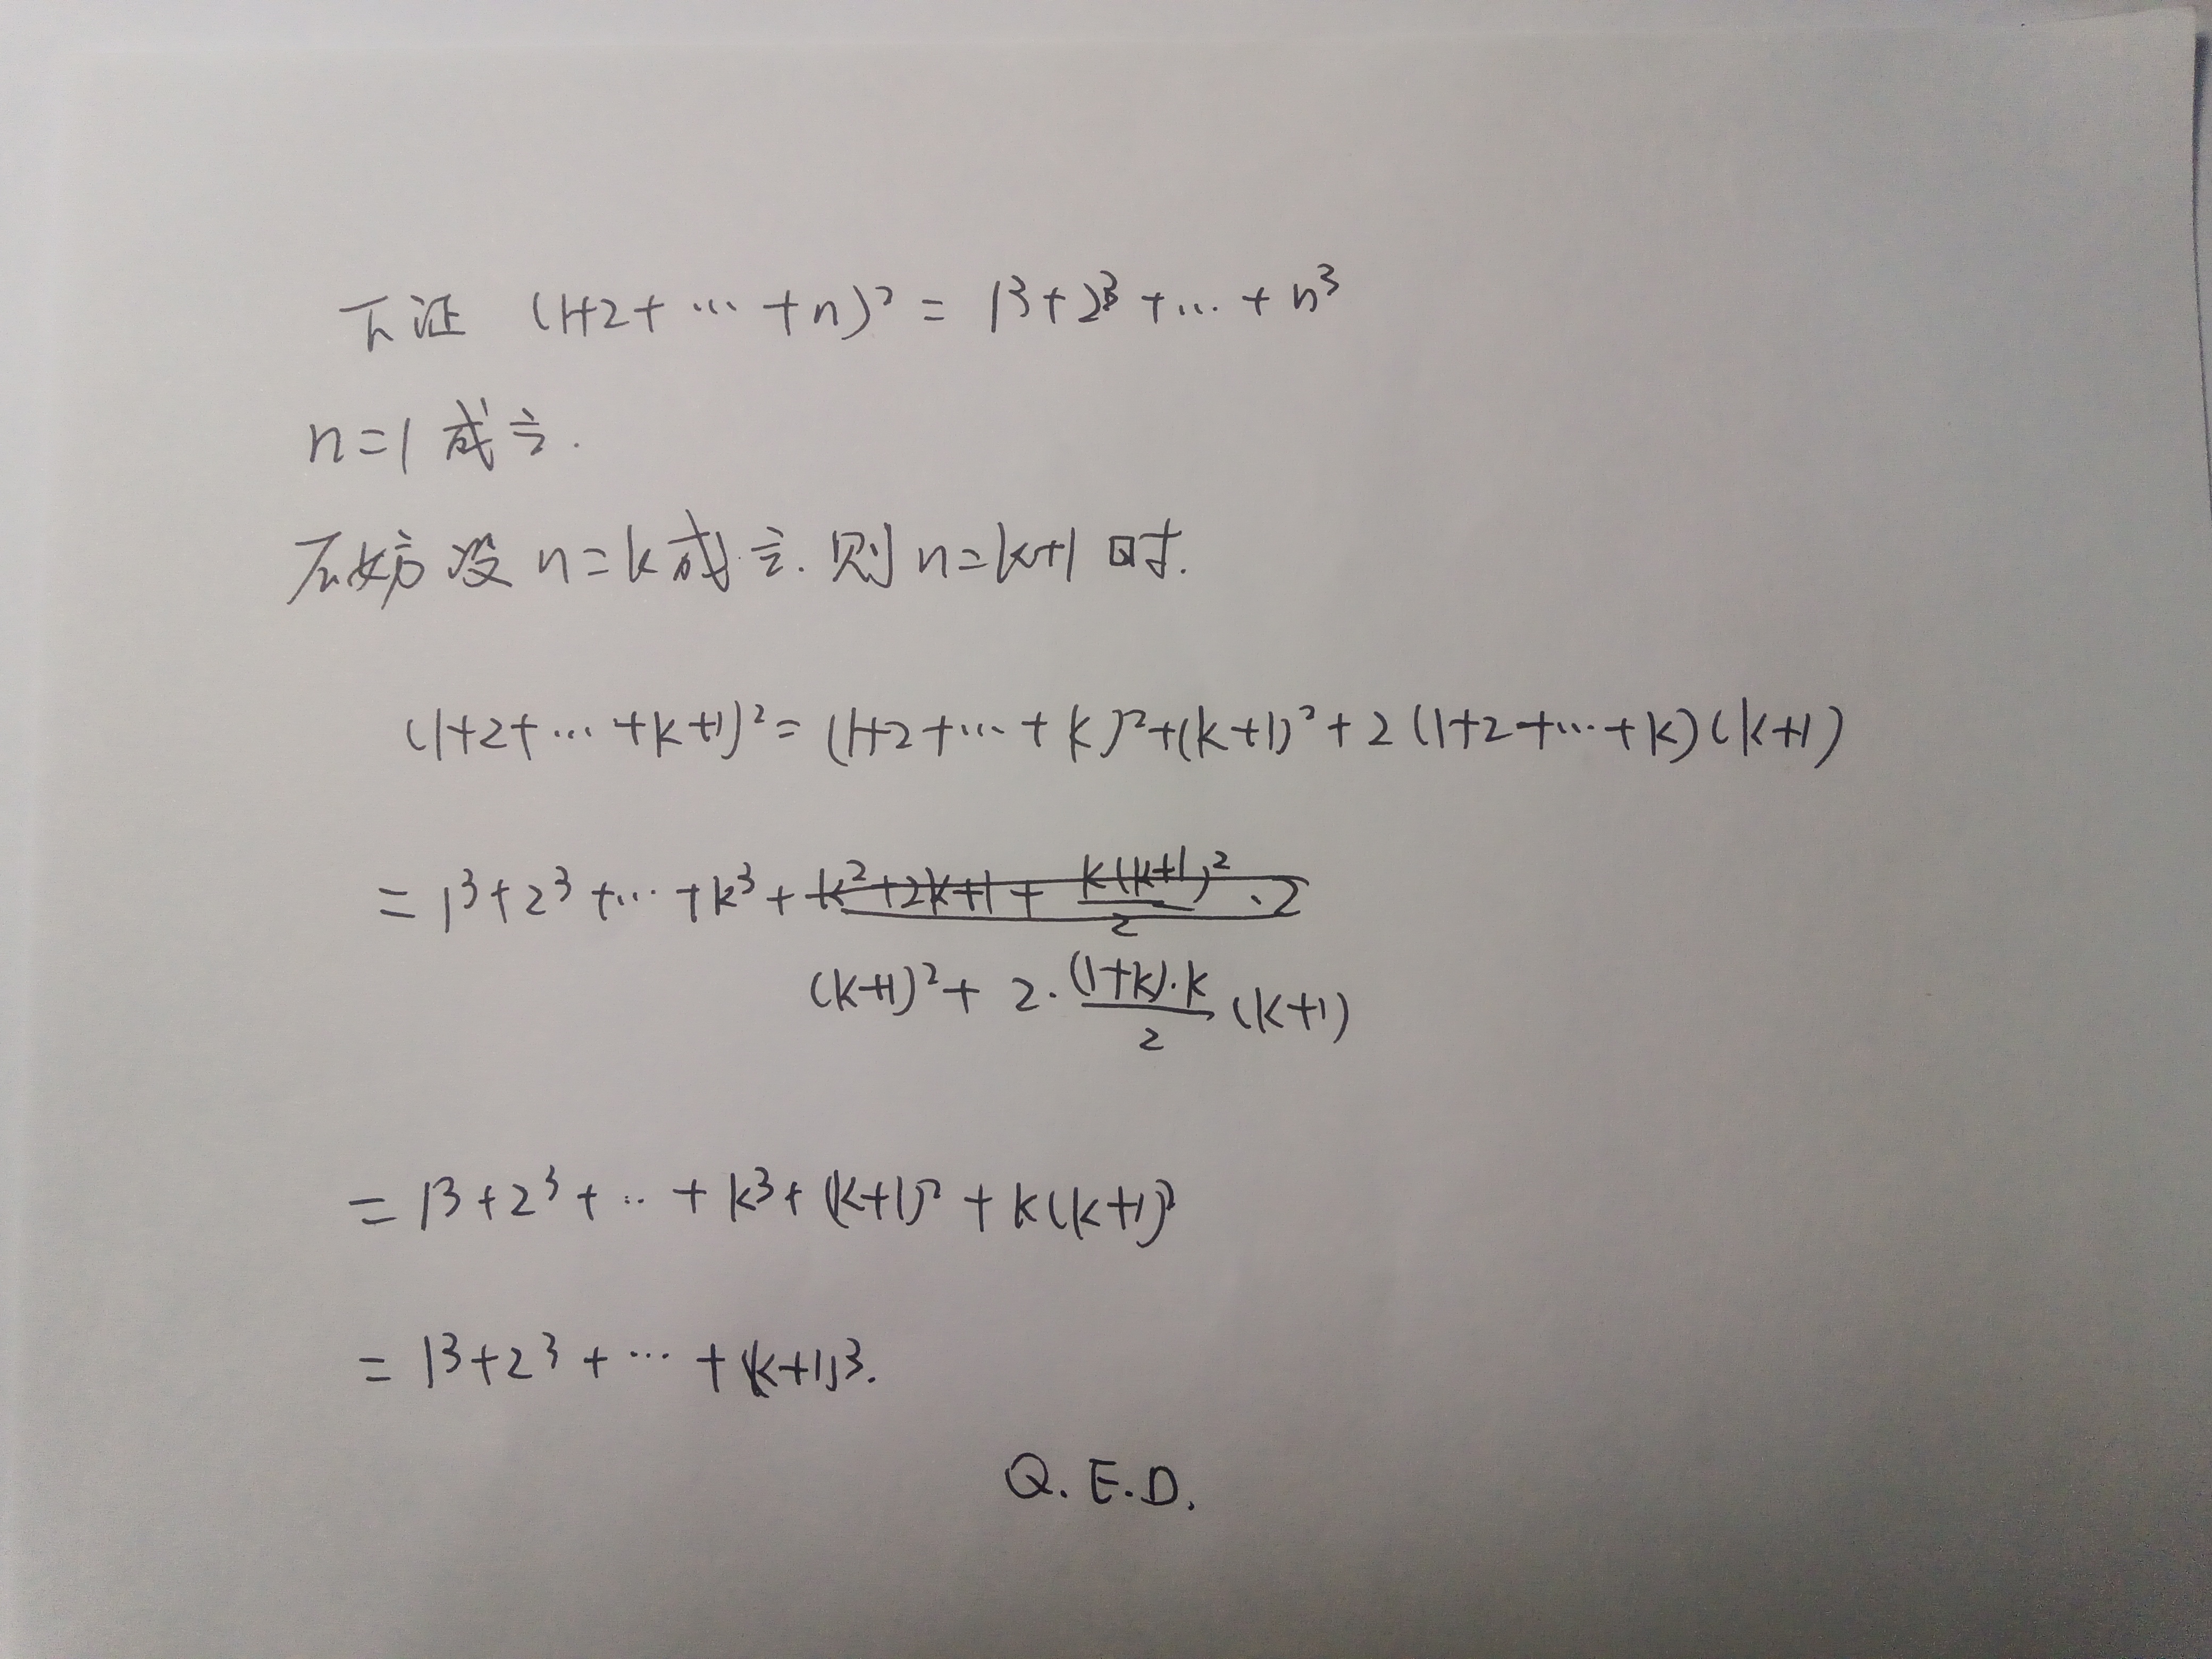 下证 (1+2+…+n)² = 1³+2³+…+n³
n=1 成立.
不妨设 n=k 成立. 则 n=k+1 时.
(1+2+…+k+1)² = (1+2+…+k)²+(k+1)²+2(1+2+…+k)(k+1)
= 1³+2³+…+k³+k²+2k+1+\frac{k(k+1)²}{2}·2
(k+1)²+2·\frac{(1+k)·k}{2}(k+1)
= 1³+2³+..+k³+(k+1)²+k(k+1)²
= 1³+2³+…+(k+1)³.
Q.E.D.